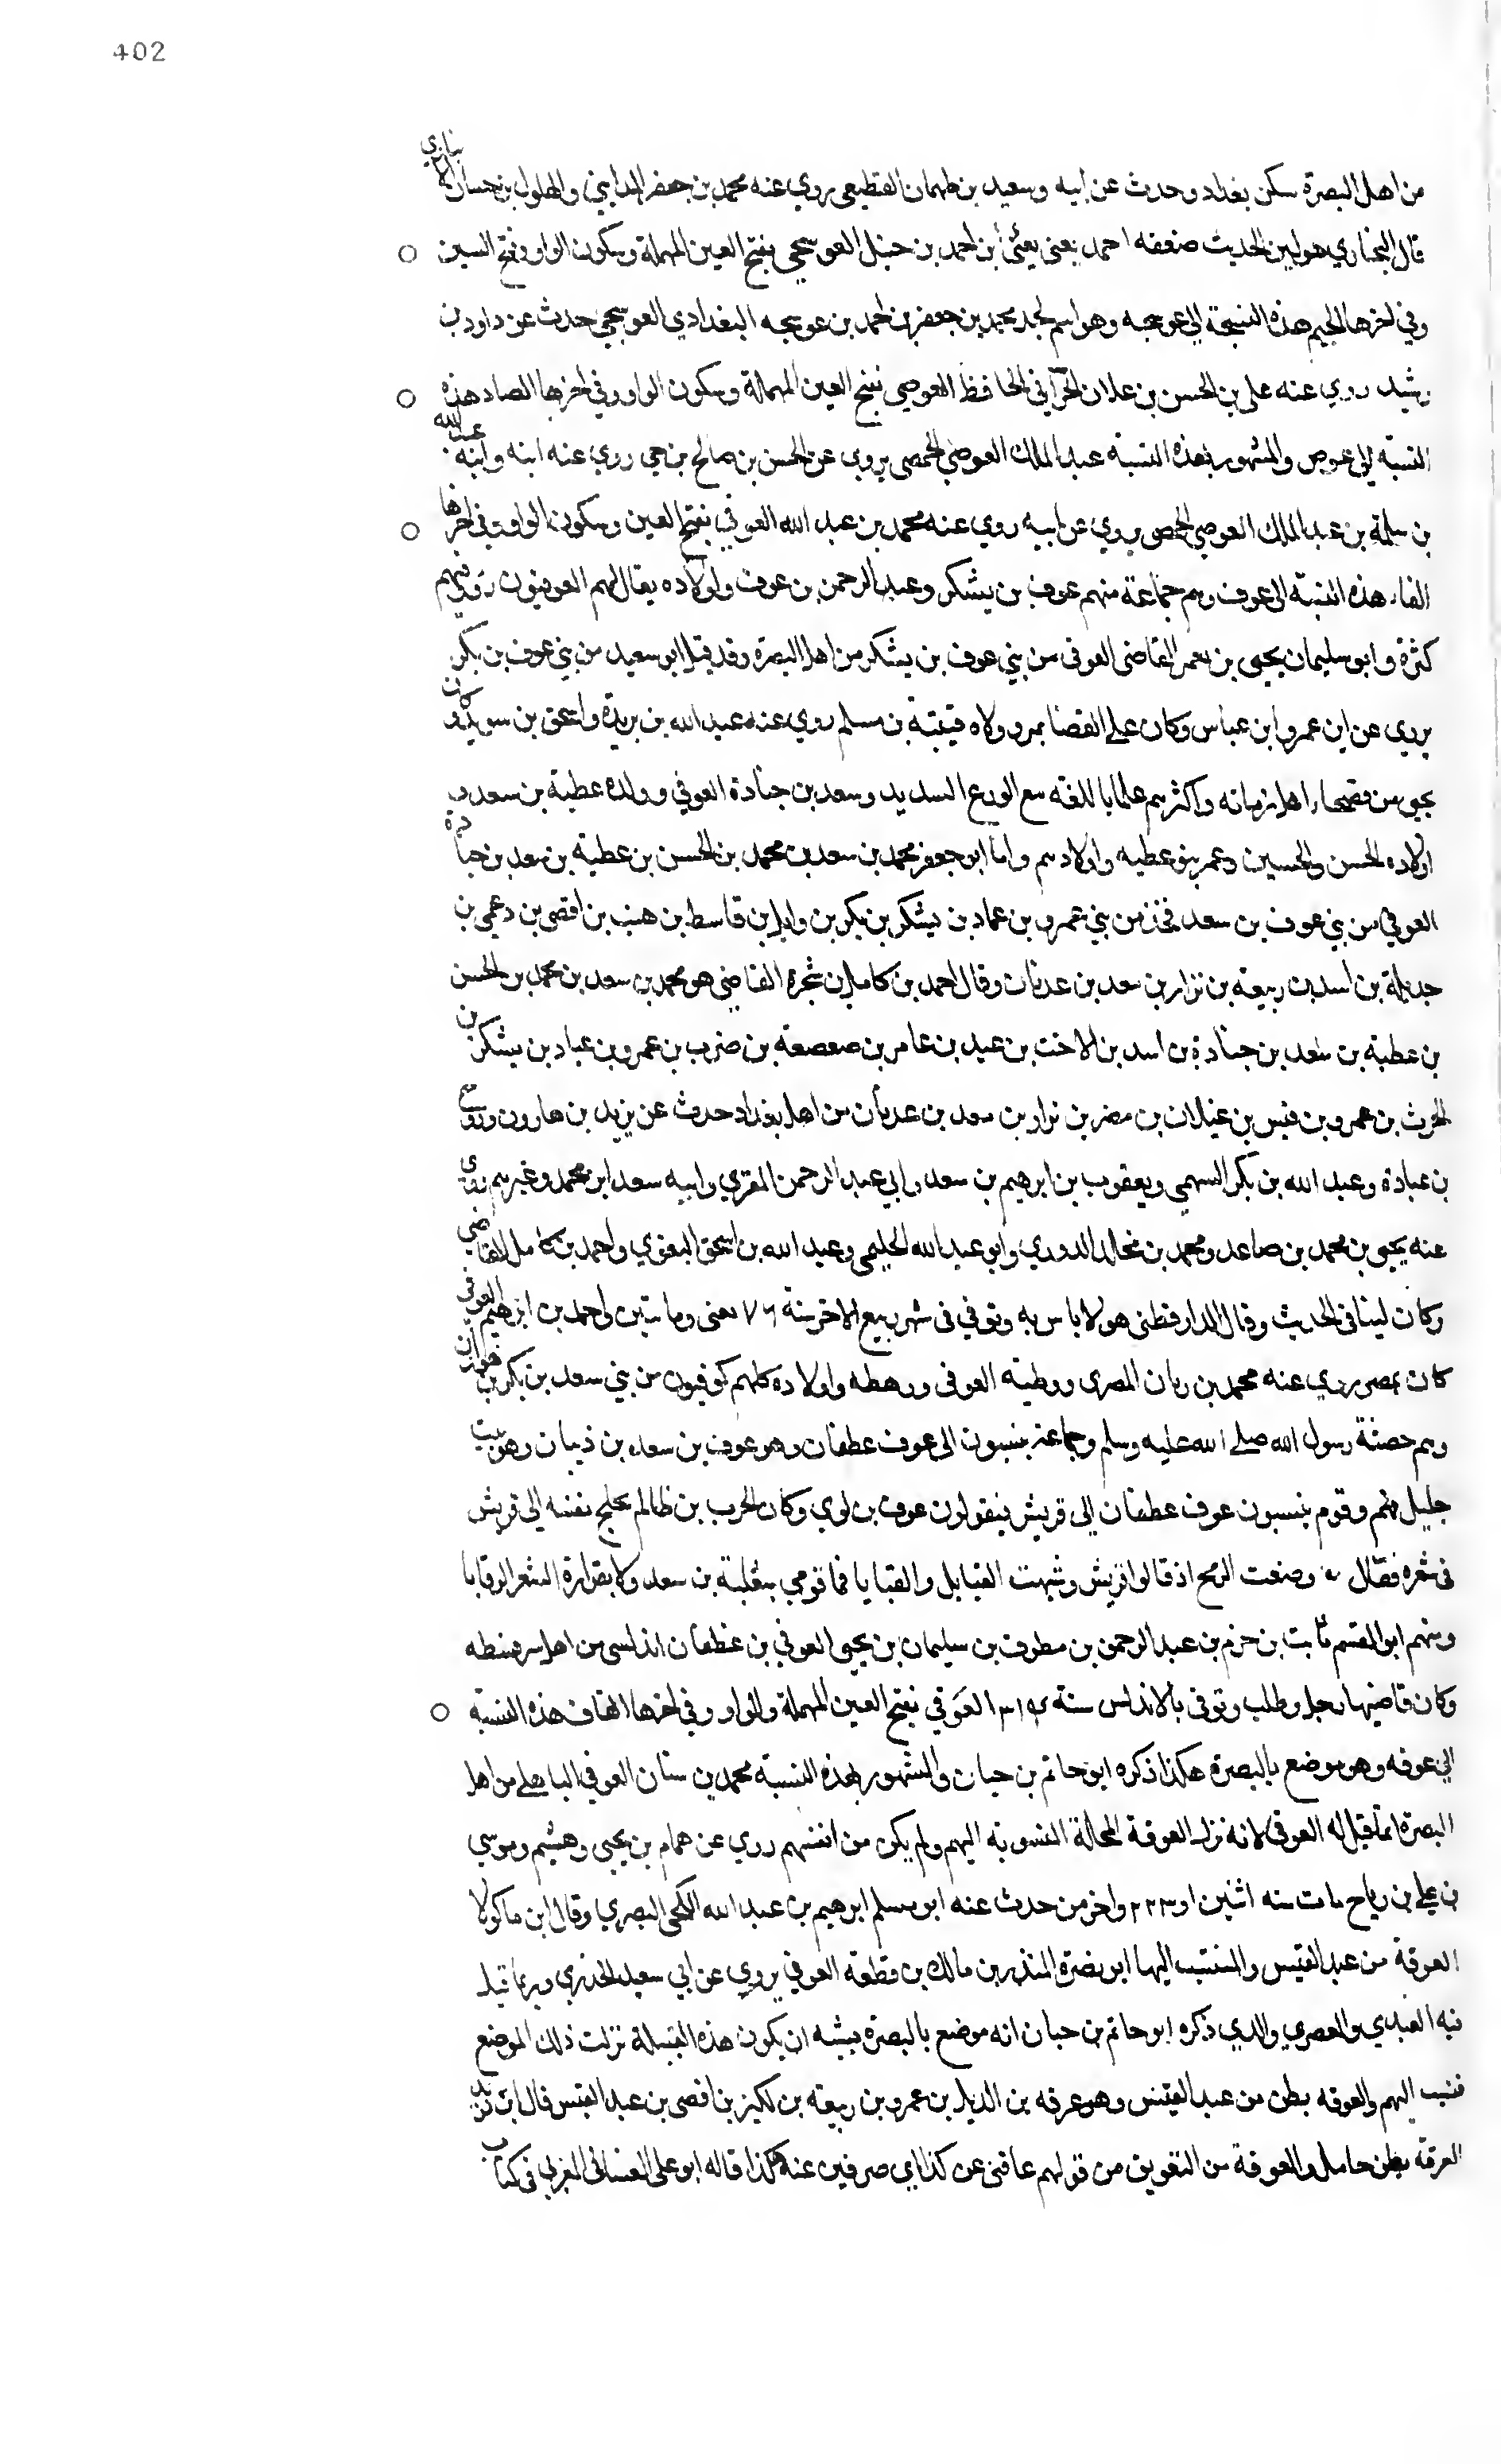 402
من اهل البصرة سكن بغداد وحدث عن ابيه وسعيد بن طهمان القطيعي روي عنه محمد بن جعفر المدايني والهلول بن حسان الانباري
قال البخاري هو لين الحديث ضعفه احمد يعني يعني ابن احمد بن حنبل العوسجي بفتح العين المهملة وسكون الواو وفتح السين
وفي اخرها الجيم هذه النسبة الي عوسجه وهو اسم لجد محمد بن جعفر بن احمد بن عوسجه البغدادي العوسجي حدث عن داود بن
رشيد روي عنه علي بن الحسن بن علان الحراني الحافظ العوصي بفتح العين المهملة وسكون الواو وفي اخرها الصاد هذه
النسبة الي عوص والمشهور بهذه النسبة عبد الملك العوصي الحمصي يروي عن الحسن بن صالح بن حي روي عنه ابنه وابنه عبد الله
بن سلمة بن عبد الملك العوصي الحمصي يروي عن ابيه روي عنه محمد بن عبد الله العوفي بفتح العين وسكون الواو وفي اخرها
الفاء هذه النسبة الى عوف وهم جماعة منهم عوف بن يشكر وعبد الرحمن بن عوف واولاده يقال لهم العوفيون وفيهم
كثرة وابو سليمان يحيى بن يعمر القاضي العوفي من بني عوف بن يشكر من اهل البصرة وقد قيل ابو سعيد من بني عوف بن بكر
يروي عن ابن عمر وابن عباس وكان على القضا بمرو ولاه قتيبة بن مسلم روي عنه عبد الله بن بريدة واسحق بن سويد وكان
يحيى من فصحاء اهل زمانه واكثرهم علما باللغه مع الورع السديد وسعد بن جنادة العوفي وولده عطية بن سعد و
اولاده الحسن والحسين وعمر بنو عطيه واولادهم واما ابو جعفر محمد بن سعد بن محمد بن الحسن بن عطية بن سعد بن جنادة
العوفي من بني عوف بن سعد فخذ من بني عمرو بن عماد بن يشكر بن بكر بن وايل بن قاسط بن هنب بن افصى بن دعمي بن
جديلة بن اسد بن ربيعة بن نزار بن سعد بن عدنان وقال احمد بن كامل بن شجرة القاضي هو محمد بن سعد بن محمد بن الحسن
بن عطية بن سعد بن جنادة بن اسد بن لاخت بن عبد بن عامر بن صعصعة بن ضرب بن عمرو بن عباد بن يشكر بن
الحرث بن عمرو بن قيس بن عيلان بن مضر بن نزار بن سعد بن عدنان من اهل بغداد حدث عن يزيد بن هارون وروح
بن عبادة وعبد الله بن بكر السهمي ويعقوب بن ابرهيم بن سعد وابي عبد الرحمن المقري وابيه سعد ابن محمد وغيرهم روي
عنه يحيى بن محمد بن صاعد ومحمد بن مخلد الدوري وابو عبد الله الحليمي وعبد الله بن اسحق البغوي واحمد بن كامل القاضي
وكان لينا في الحديث وقال الدارقطني هو لا باس به وتوفي في شهر ربيع الاخر سنة ٧٦ يعني ومايتين واحمد بن ابرهيم العوفي
كان بمصر روي عنه محمد بن ريان المصري ووطية العوفي ورهطه واولاده كلهم كوفيون من بني سعد بن بكر بن هوازن
وهم حضنة رسول الله صلى الله عليه وسلم وجماعة ينسبون الى عوف عطفان وهو عوف بن سعد بن ذبيان وهو بيت
جليل منهم وقوم ينسبون عوف عطفان الي قريش فيقولون عوف بن لوي وكان الحرب بن ظالم يحلج نفسه الي قريش
في شعره فقال وضعت الرمح اذ قالوا قريش وشبهت القبايل والقبايا فما قومي بثعلبة بن سعد ولا بفزارة الشعر الرقابا
ومنهم ابو القسم ثابت بن حزم بن عبد الرحمن بن مطرف بن سليمان بن يحيى العوفي بن غطفان اندلسي من اهل سرقسطه
وكان قاضيها رحل وطلب وتوفي بالاندلس سنة ٣١٤ العوقي بفتح العين المهملة والواو وفي اخرها القاف هذه النسبة
الي عوقه وهو موضع بالبصرة هكذا ذكره ابو حاتم بن حبان والمشهور بهذه النسبة محمد بن سنان العوقي الباهلي من اهل
البصرة انما قيل له العوقي لانه نزل العوقة المحالة المنسوبه اليهم ولم يكن من انفسهم روي عن همام بن يحيى وهشيم وموسي
بن علي بن رياح مات سنه اثنين او ٢٢٣ واخر من حدث عنه ابو مسلم ابرهيم بن عبد الله الكجي البصري وقال ابن ماكولا
العوقة من عبد القيس والمنتسب اليها ابو نضرة المنذر بن مالك بن قطعة العوقي يروي عن ابي سعيد الخدري وربما قيل
فيه العبدي والعصري والذي ذكره ابو حاتم بن حبان انه موضع بالبصرة يشبه ان يكون هذه القبيلة نزلت ذلك الموضع
فنسب اليهم والعوقه بطن من عبد القيس وهو عوقه بن الديل بن عمرو بن ربيعة بن لكيز بن افصى بن عبد القيس قال ابن دريد
العوقة بطن حامل والعوقة من التعويق من قولهم عاقني عن كذا اي صرفني عنه هكذا قاله ابو علي الغساني المغربي في كتاب